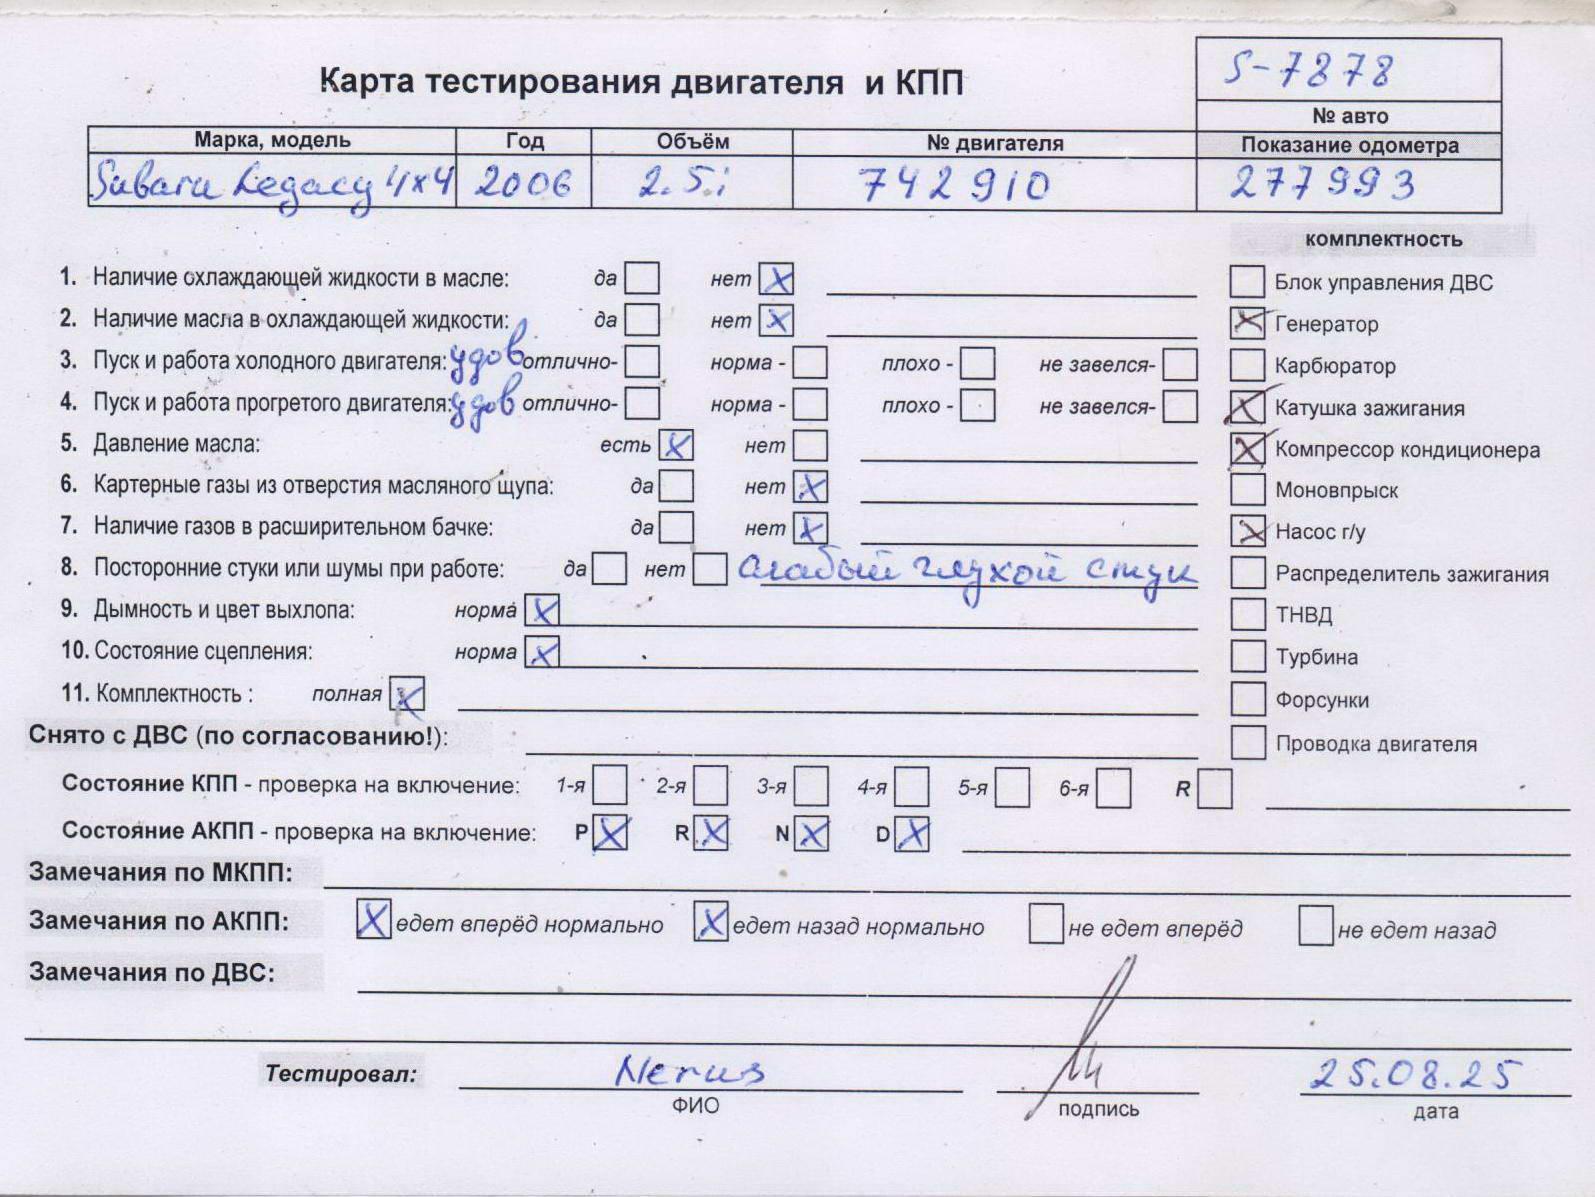 S-7878
Карта тестирования двигателя и КПП
№ авто
Марка, модель Год Объём № двигателя Показание одометра
Subaru Legacy 4x4 2006 2.5i 742910 277993
комплектность
1. Наличие охлаждающей жидкости в масле: да нет X Блок управления ДВС
2. Наличие масла в охлаждающей жидкости: да нет X X Генератор
3. Пуск и работа холодного двигателя: удов отлично- норма - плохо - не завелся- Карбюратор
4. Пуск и работа прогретого двигателя: удов отлично- норма - плохо - не завелся- X Катушка зажигания
5. Давление масла: есть X нет X Компрессор кондиционера
6. Картерные газы из отверстия масляного щупа: да нет X Моновпрыск
7. Наличие газов в расширительном бачке: да нет X X Насос г/у
8. Посторонние стуки или шумы при работе: да нет слабый глухой стук Распределитель зажигания
9. Дымность и цвет выхлопа: норма X ТНВД
10. Состояние сцепления: норма X Турбина
11. Комплектность : полная X Форсунки
Снято с ДВС (по согласованию!): Проводка двигателя
Состояние КПП - проверка на включение: 1-я 2-я 3-я 4-я 5-я 6-я R
Состояние АКПП - проверка на включение: P X R X N X D X
Замечания по МКПП:
Замечания по АКПП: X едет вперёд нормально X едет назад нормально не едет вперёд не едет назад
Замечания по ДВС:
Тестировал: 25.08.25
ФИО подпись дата